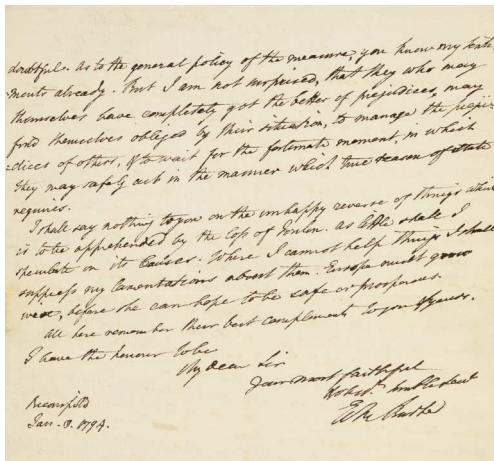 doubtful. As to the general policy of the measure, you know my senti
ments already. But I am not surprised, that they who may
themselves have completely got the better of prejudices, may
find themselves obliged by their situation, to manage the preju
-dices of others, & to wait for the fortunate moment, in which
they may safely act in the manner which true reason of state
requires.
I shall say nothing to you on the unhappy reverse of things which
is to be apprehended by the loss of Toulon. As little shall I
speculate on its Causes. Where I cannot help things I shall
suppress my lamentations about them. Europe must grow
before she can hope to be safe or prosperous.
All here remember their best compliments to you & yours.
I have the honour to be
My dear Sir
Your most faithful
& obedt. humble Servt
Edm Burke
Beconsfield
Jan. 8. 1794.